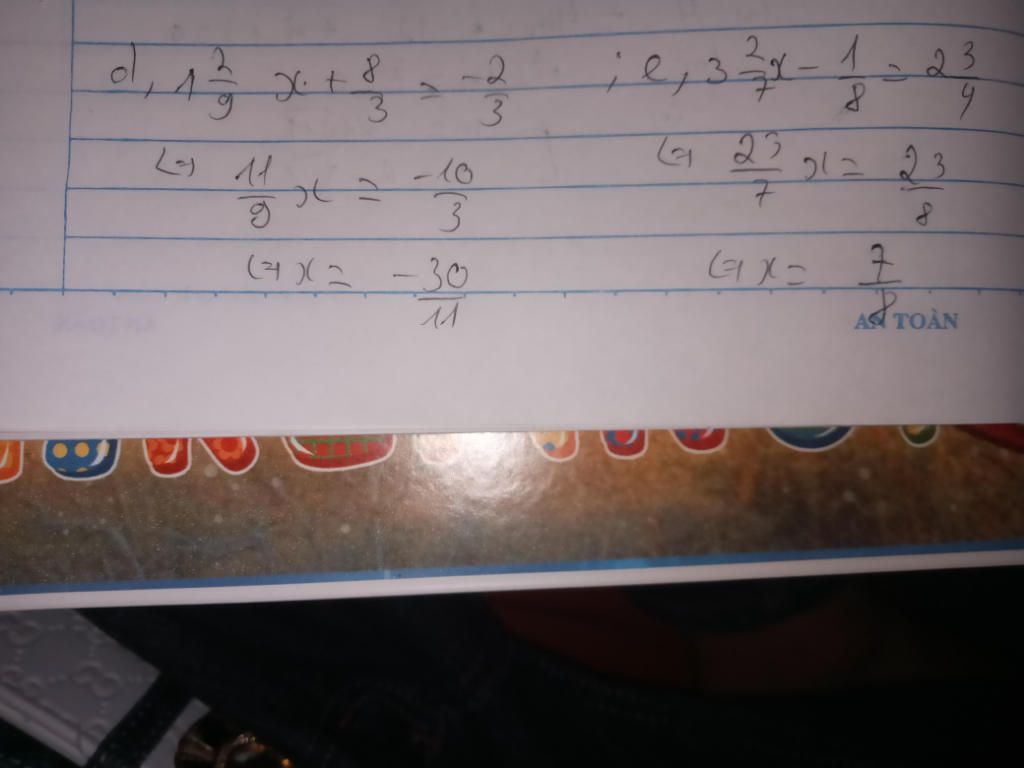 d, 1 2/9 x + 8/3 = -2/3 ; e, 3 2/7 x - 1/8 = 2 3/4
<=> 11/9 x = -10/3 <=> 23/7 x = 23/8
<=> x = -30/11 <=> x = 7/8
AN TOÀN